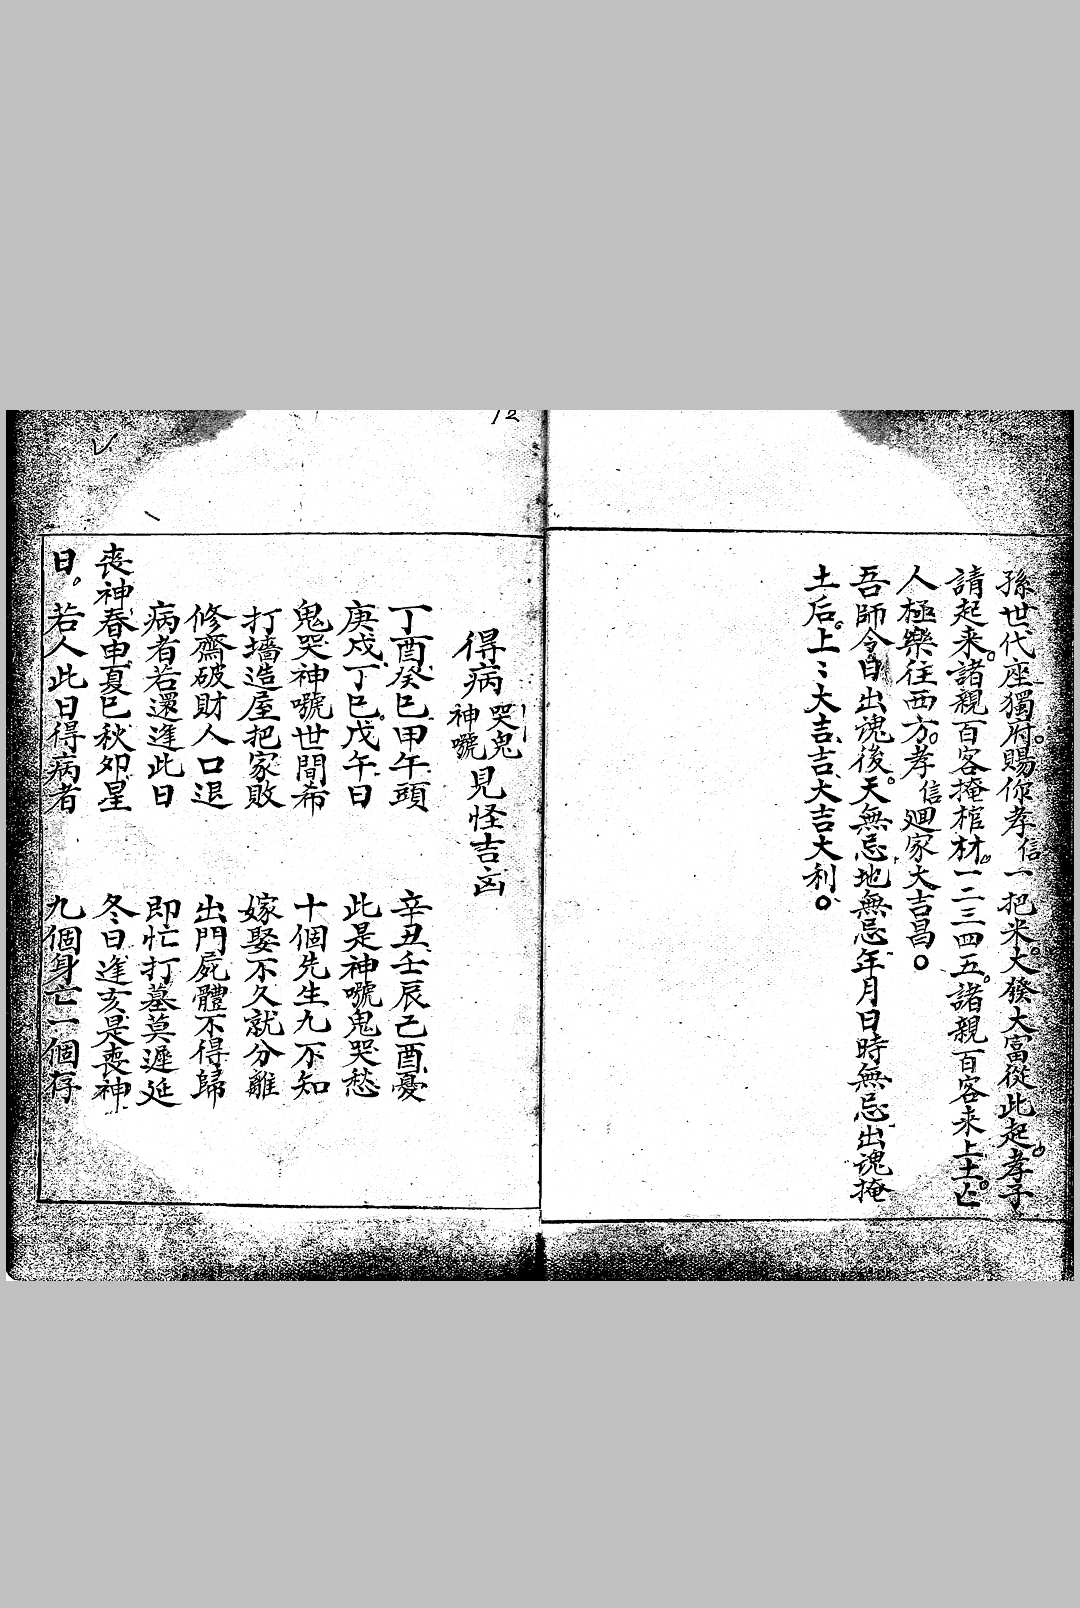 孫世代座獨府。賜你孝信一把米。大發大富從此起。孝子
請起来。諸親百客掩棺材。一二三四五。諸親百客来上土。亡
人極樂往西方。孝信廻家大吉昌。
吾師令自出魂後。天無忌地無忌年月日時無忌出魂掩
土后。上〻大吉吉大吉大利。
12
得病哭鬼神嚎見怪吉凶
丁酉癸巳甲午頭 辛丑壬辰己酉憂
庚戌丁巳戊午日 此是神嚎鬼哭愁
鬼哭神嚎世間希 十個先生九不知
打墻造屋把家敗 嫁娶不久就分離
修齋破財人口退 出門屍體不得歸
病者若還逢此日 即忙打墓莫遲延
喪神春申夏巳秋卯星 冬日逢亥是喪神
日。若人此日得病者 九個身亡一個存